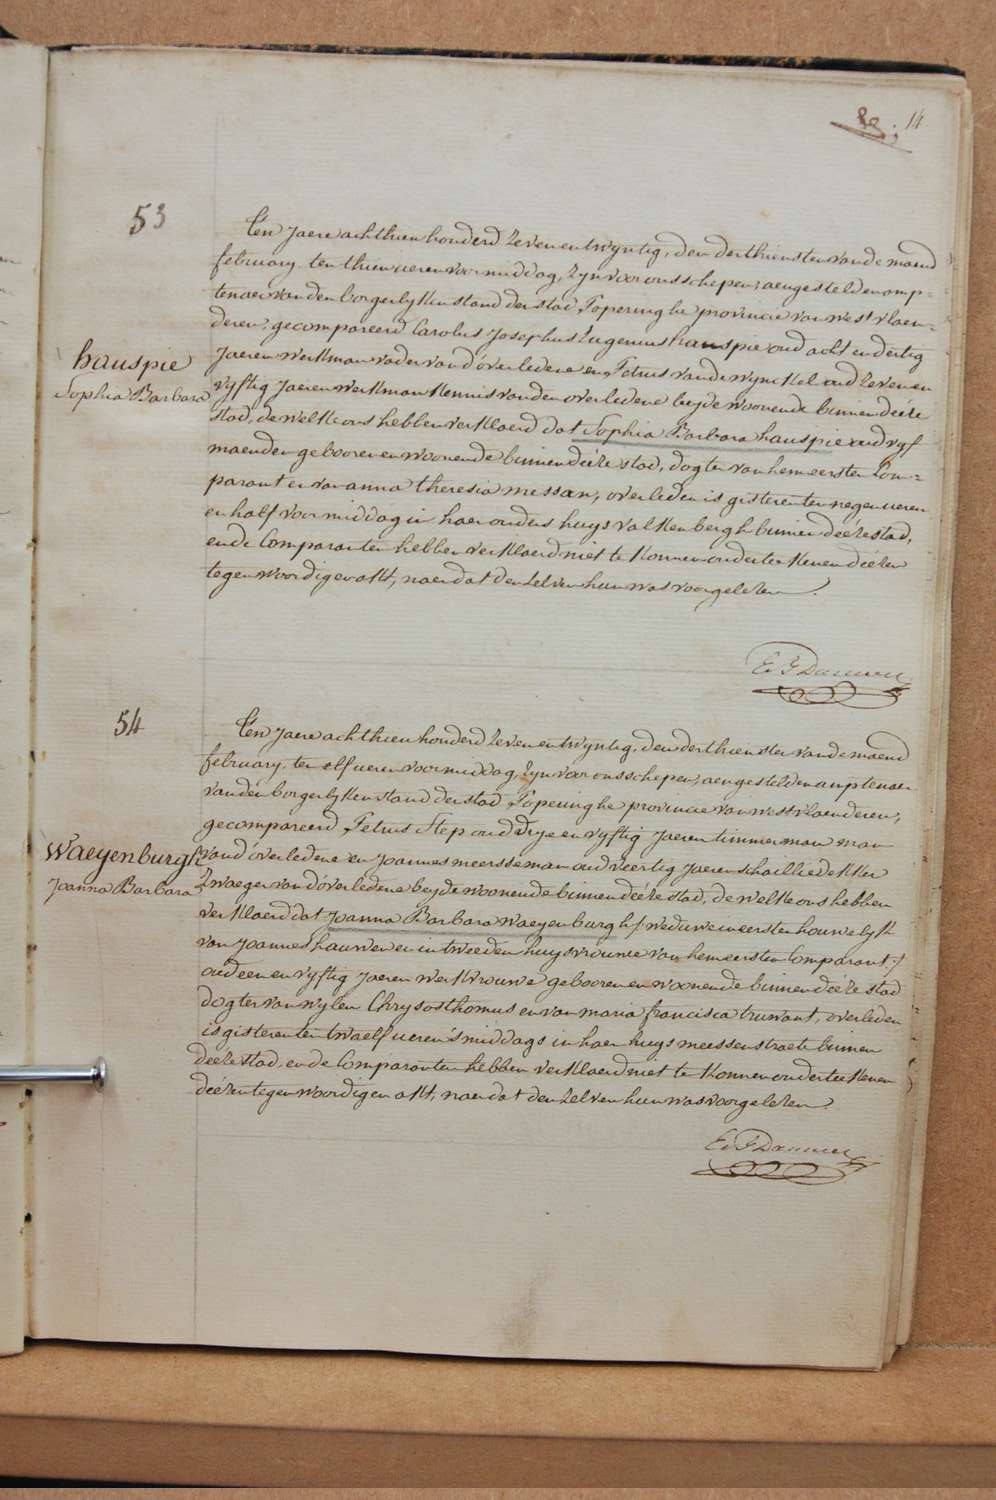 14
53
Ten Jaere achthien honderd zeven en twyntig, den derthiensten van de maend
february, ten thien ueren voormiddag, zyn voor ons schepen, aengestelden amp-
tenaer van den borgerlyken stand der stad Poperinghe provincie van westvlaen-
deren, gecompareerd Carolus Josephus Eugenius hauspie oud acht en dertig
hauspie
Sophia Barbara
Jaeren werkman vader van d'overledene en Petrus vande wynckel oud zeven en
vyftig Jaeren werkman kennis van den overledene beyde woonende binnen deéze
stad, de welke ons hebben verklaerd dat Sophia Barbara hauspie oud vyf
maenden geboren en woonende binnen deéze stad, dogter van hem eersten Com-
parant en van anna theresia messan, overleden is gisteren ten negen ueren
en half voormiddag in haer ouders huys valkenbergh binnen deéze stad,
en de Comparanten hebben verklaerd niet te konnen onderteekenen deézen
tegenwoordigen akt, naer dat den zelven hun was voorgelezen.
54
Ten Jaere achthien honderd zeven en twyntig, den derthiensten van de maend
february, ten elf ueren voormiddag, zyn voor ons schepen, aengestelden amptenaer
van den borgerlyken stand der stad Poperinghe provincie van westvlaenderen,
gecompareerd Petrus Step oud drye en vyftig Jaeren timmerman man
Waeyenburgh
Joanna Barbara
van d'overledene en Joannes meersseman oud veertig Jaeren schailliedekker
Zwaeger van d'overledene beyde woonende binnen deéze stad, de welke ons hebben
verklaerd dat Joanna Barbara Waeyenburgh /weduwe in eersten houwelyk
van Joannes hauwen en in tweeden huysvrouwe van hem eersten Comparant/
oud een en vyftig Jaeren werkvrouwe geboren en woonende binnen deéze stad
dogter van wylen Chrysosthomus en van maria francisca truwant, overleden
is gisteren ten twaelf ueren s'middags in haer huys meessenstraete binnen
deéze stad, en de Comparanten hebben verklaerd niet te konnen onderteekenen
deézen tegenwoordigen akt, naer dat den zelven hun was voorgelezen.